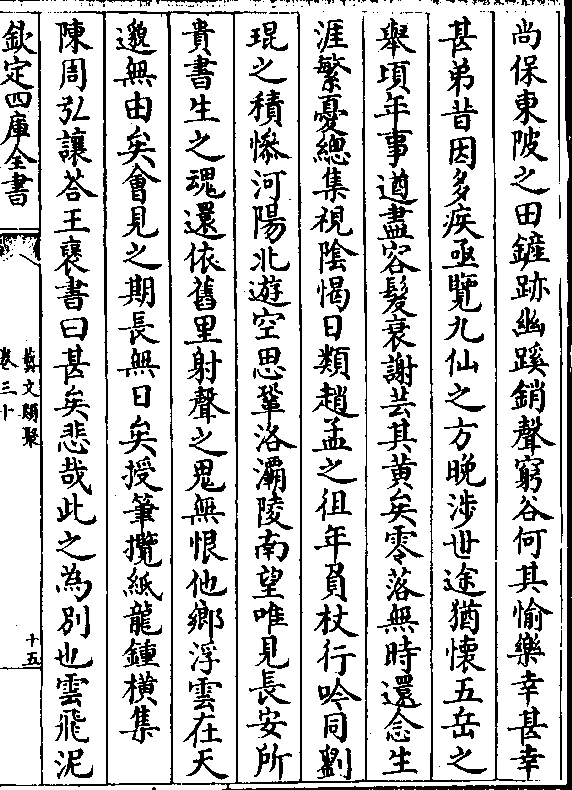 尚保東陂之田鏟跡幽蹊銷聲窮谷何其愉樂幸甚幸
甚弟昔因多疾亟覽九仙之方晚涉世途猶懷五岳之
舉頃年事遒盡容髮衰謝芸其黄矣零落無時還念生
涯繁憂總集視陰愒日類趙孟之徂年負杖行吟同劉
琨之積慘河陽北遊空思鞏洛灞陵南望唯見長安所
貴書生之魂還依舊里射聲之鬼無恨他鄉浮雲在天
邈無由矣會見之期長無日矣授筆攬紙龍鍾横集
陳周弘讓荅王襃書曰甚矣悲哉此之為別也雲飛泥
欽定四庫全書
藝文類聚
卷三十
十五